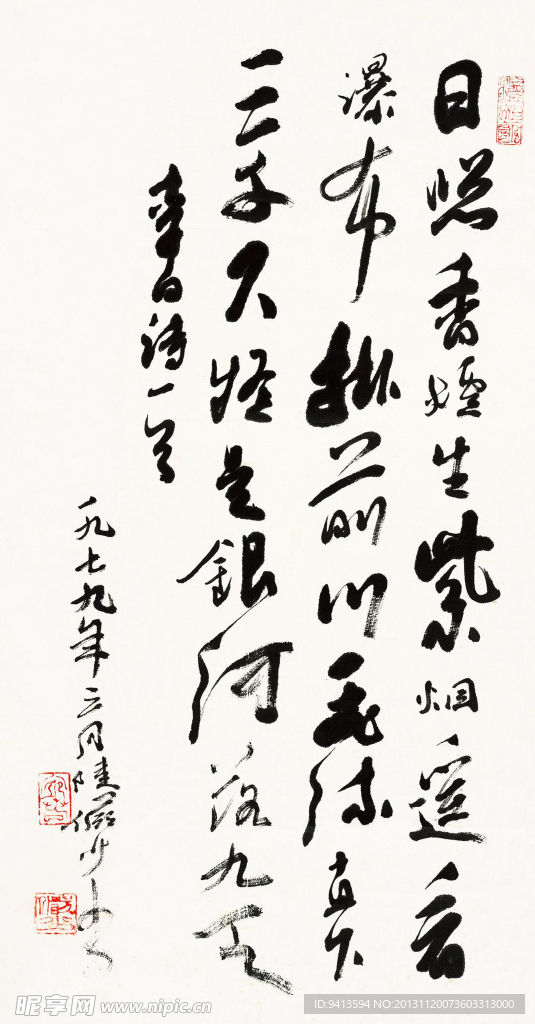 日照香爐生紫烟遥看
瀑布掛前川飛流直下
三千尺疑是銀河落九天
李白詩一首
一九七九年二月陸儼少書
昵享网 www.nipic.cn
ID:9413594 NO:20131120073603313000